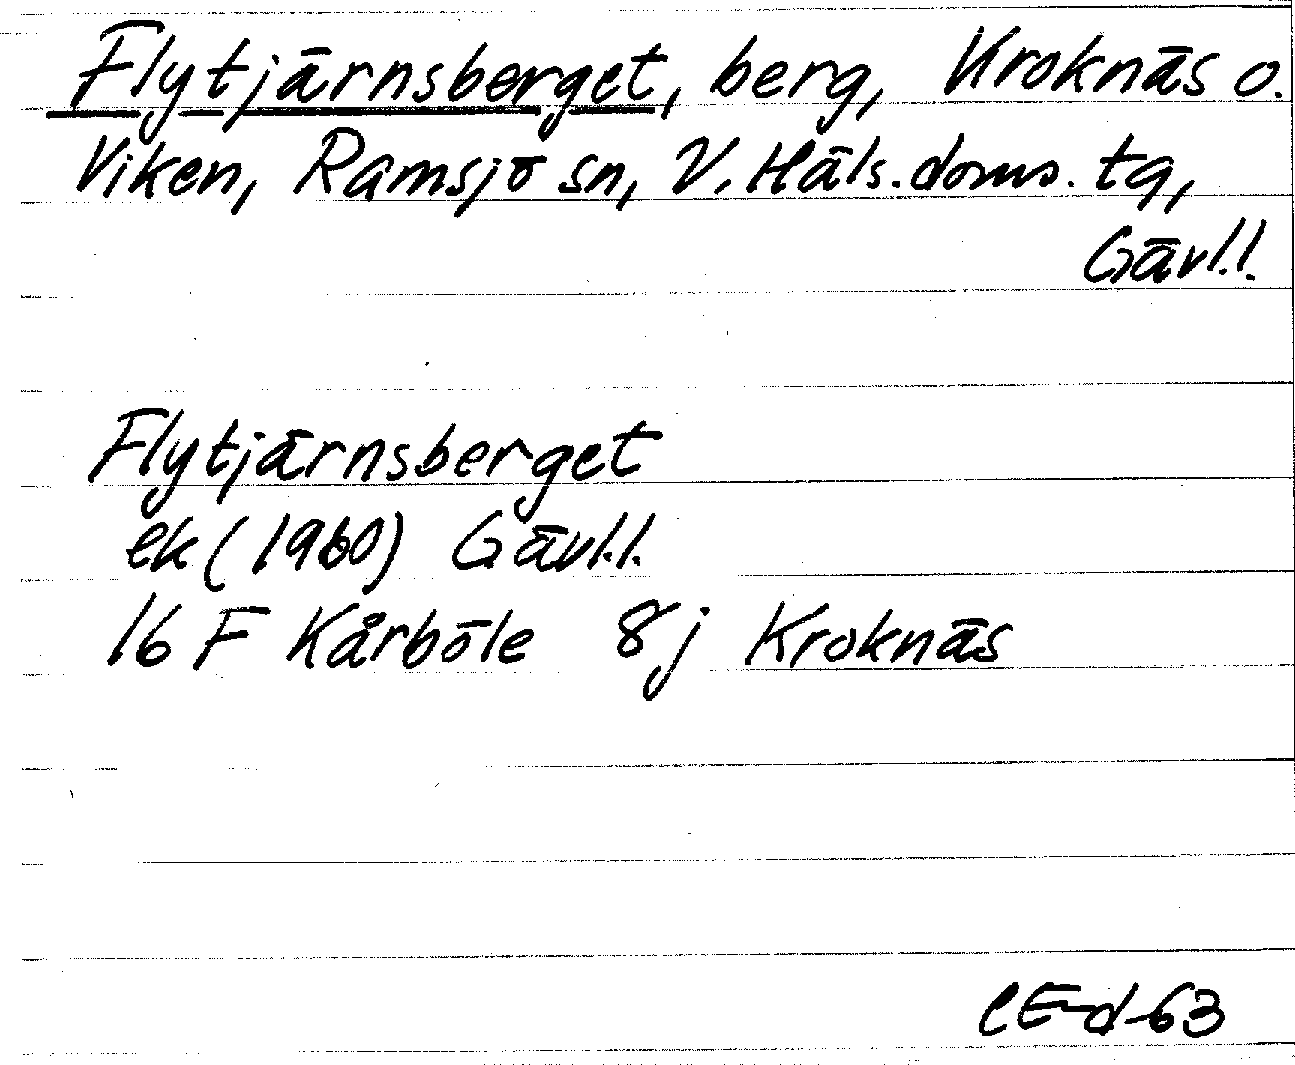 Flytjärnsberget, berg, Kroknäs o.
Viken, Ramsjö sn, V. Häls. doms. tg,
Gävl.l.
Flytjärnsberget
ek (1960) Gävl.l.
16 F Kårböle 8j Kroknäs
CE-d-63